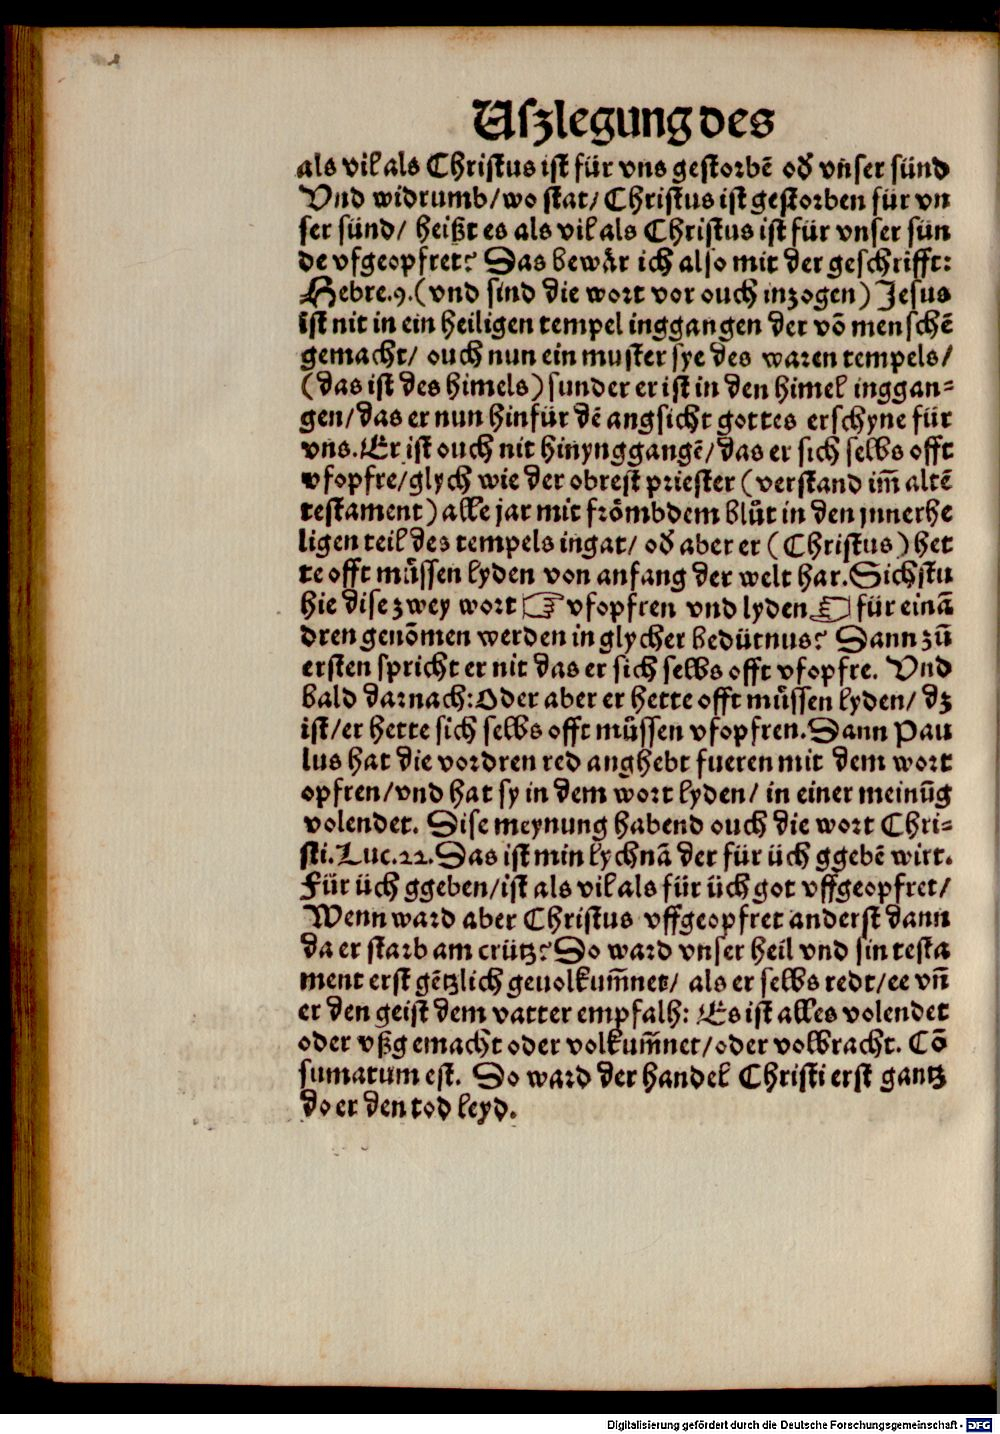 Uſzlegung des
als vil als Chriſtus iſt für vns geſtorbē oď vnſer ſünd
Vnd widrumb/ wo ſtat/ Chriſtus iſt geſtorben für vn
ſer ſünd/ heißt es als vil als Chriſtus iſt für vnſer ſün
de vfgeopfret? Das bewår ich alſo mit der geſchrifft:
Hebre.9.(vnd ſind die wort vor ouch inzogen) Jeſus
iſt nit in ein heiligen tempel inggangen der vō menſchē
gemacht/ ouch nun ein muſter ſye des waren tempels/
(das iſt des himels) ſunder er iſt in den himel inggan⸗
gen/ das er nun hinfür dē angſicht gottes erſchyne für
vns. Er iſt ouch nit hinynggangē/ das er ſich ſelbs offt
vfopfre/ glych wie der obreſt prieſter (verſtand im̄ altē
teſtament) alle jar mit frömbdem blůt in den jnnerhe
ligen teil des tempels ingat/ oď aber er (Chriſtus) het
te offt můſſen lyden von anfang der welt har. Sichſtu
hie diſe zwey wort ☞ vfopfren vnd lyden ☜ für einā
dren genōmen werden in glycher bedütnus? Dann zů
erſten ſpricht er nit das er ſich ſelbs offt vfopfre. Vnd
bald darnach: Oder aber er hette offt můſſen lyden/ dz
iſt/ er hette ſich ſelbs offt můſſen vfopfren. Dann Pau
lus hat die vordren red anghebt fueren mit dem wort
opfren/ vnd hat ſy in dem wort lyden/ in einer meinūg
volendet. Diſe meynung habend ouch die wort Chri⸗
ſti. Luc.22. Das iſt min lychnā der für üch ggebē wirt.
Für üch ggeben/ iſt als vil als für üch got vffgeopfret/
Wenn ward aber Chriſtus vffgeopfret anderſt dann
da er ſtarb am crütz? So ward vnſer heil vnd ſin teſta
ment erſt gētzlich geuolkum̄net/ als er ſelbs redt/ ee vn̄
er den geiſt dem vatter empfalh: Es iſt alles volendet
oder vßgemacht oder volkum̄net/ oder volbracht. Cō
ſumatum eſt. So ward der handel Chriſti erſt gantz
do er den tod leyd.
Digitalisierung gefördert durch die Deutsche Forschungsgemeinschaft - DFG